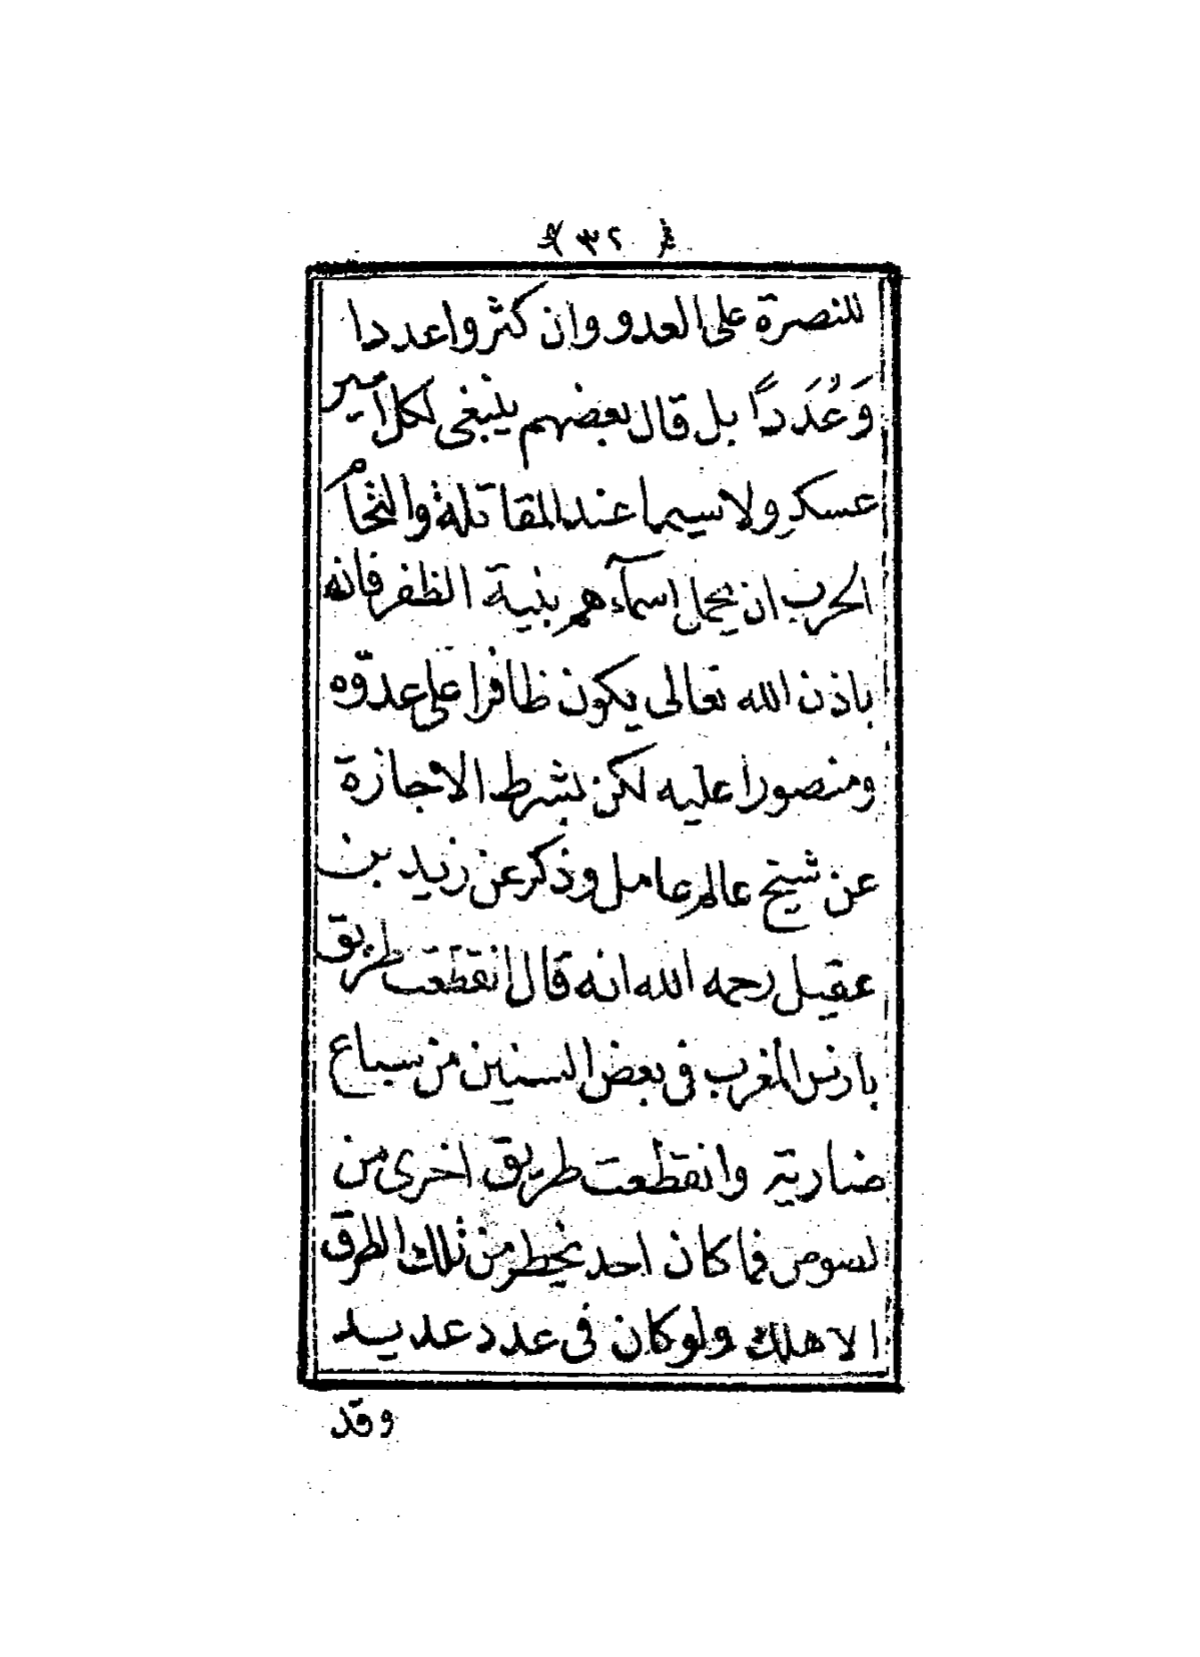 ﴿ ٣٢ ﴾
للنصرة على العدو وان كثروا عددا
وَعُدَدًا بل قال بعضهم ينبغى لكل امير
عسكر ولا سيما عند المقاتلة والتحام
الحرب ان يحمل اسمآءهم بنية الظفر فانه
باذن الله تعالى يكون ظافرا على عدوّه
ومنصورا عليه لكن بشرط الاجازة
عن شيخ عالم عامل وذكر عن زيد بن
عقيل رحمه الله انه قال انقطعت طريق
بارض المغرب فى بعض السنين من سباع
ضارية وانقطعت طريق اخرى من
لصوص فما كان احد يخطر من تلك الطرق
الا هلك ولو كان فى عدد عديد
وقد